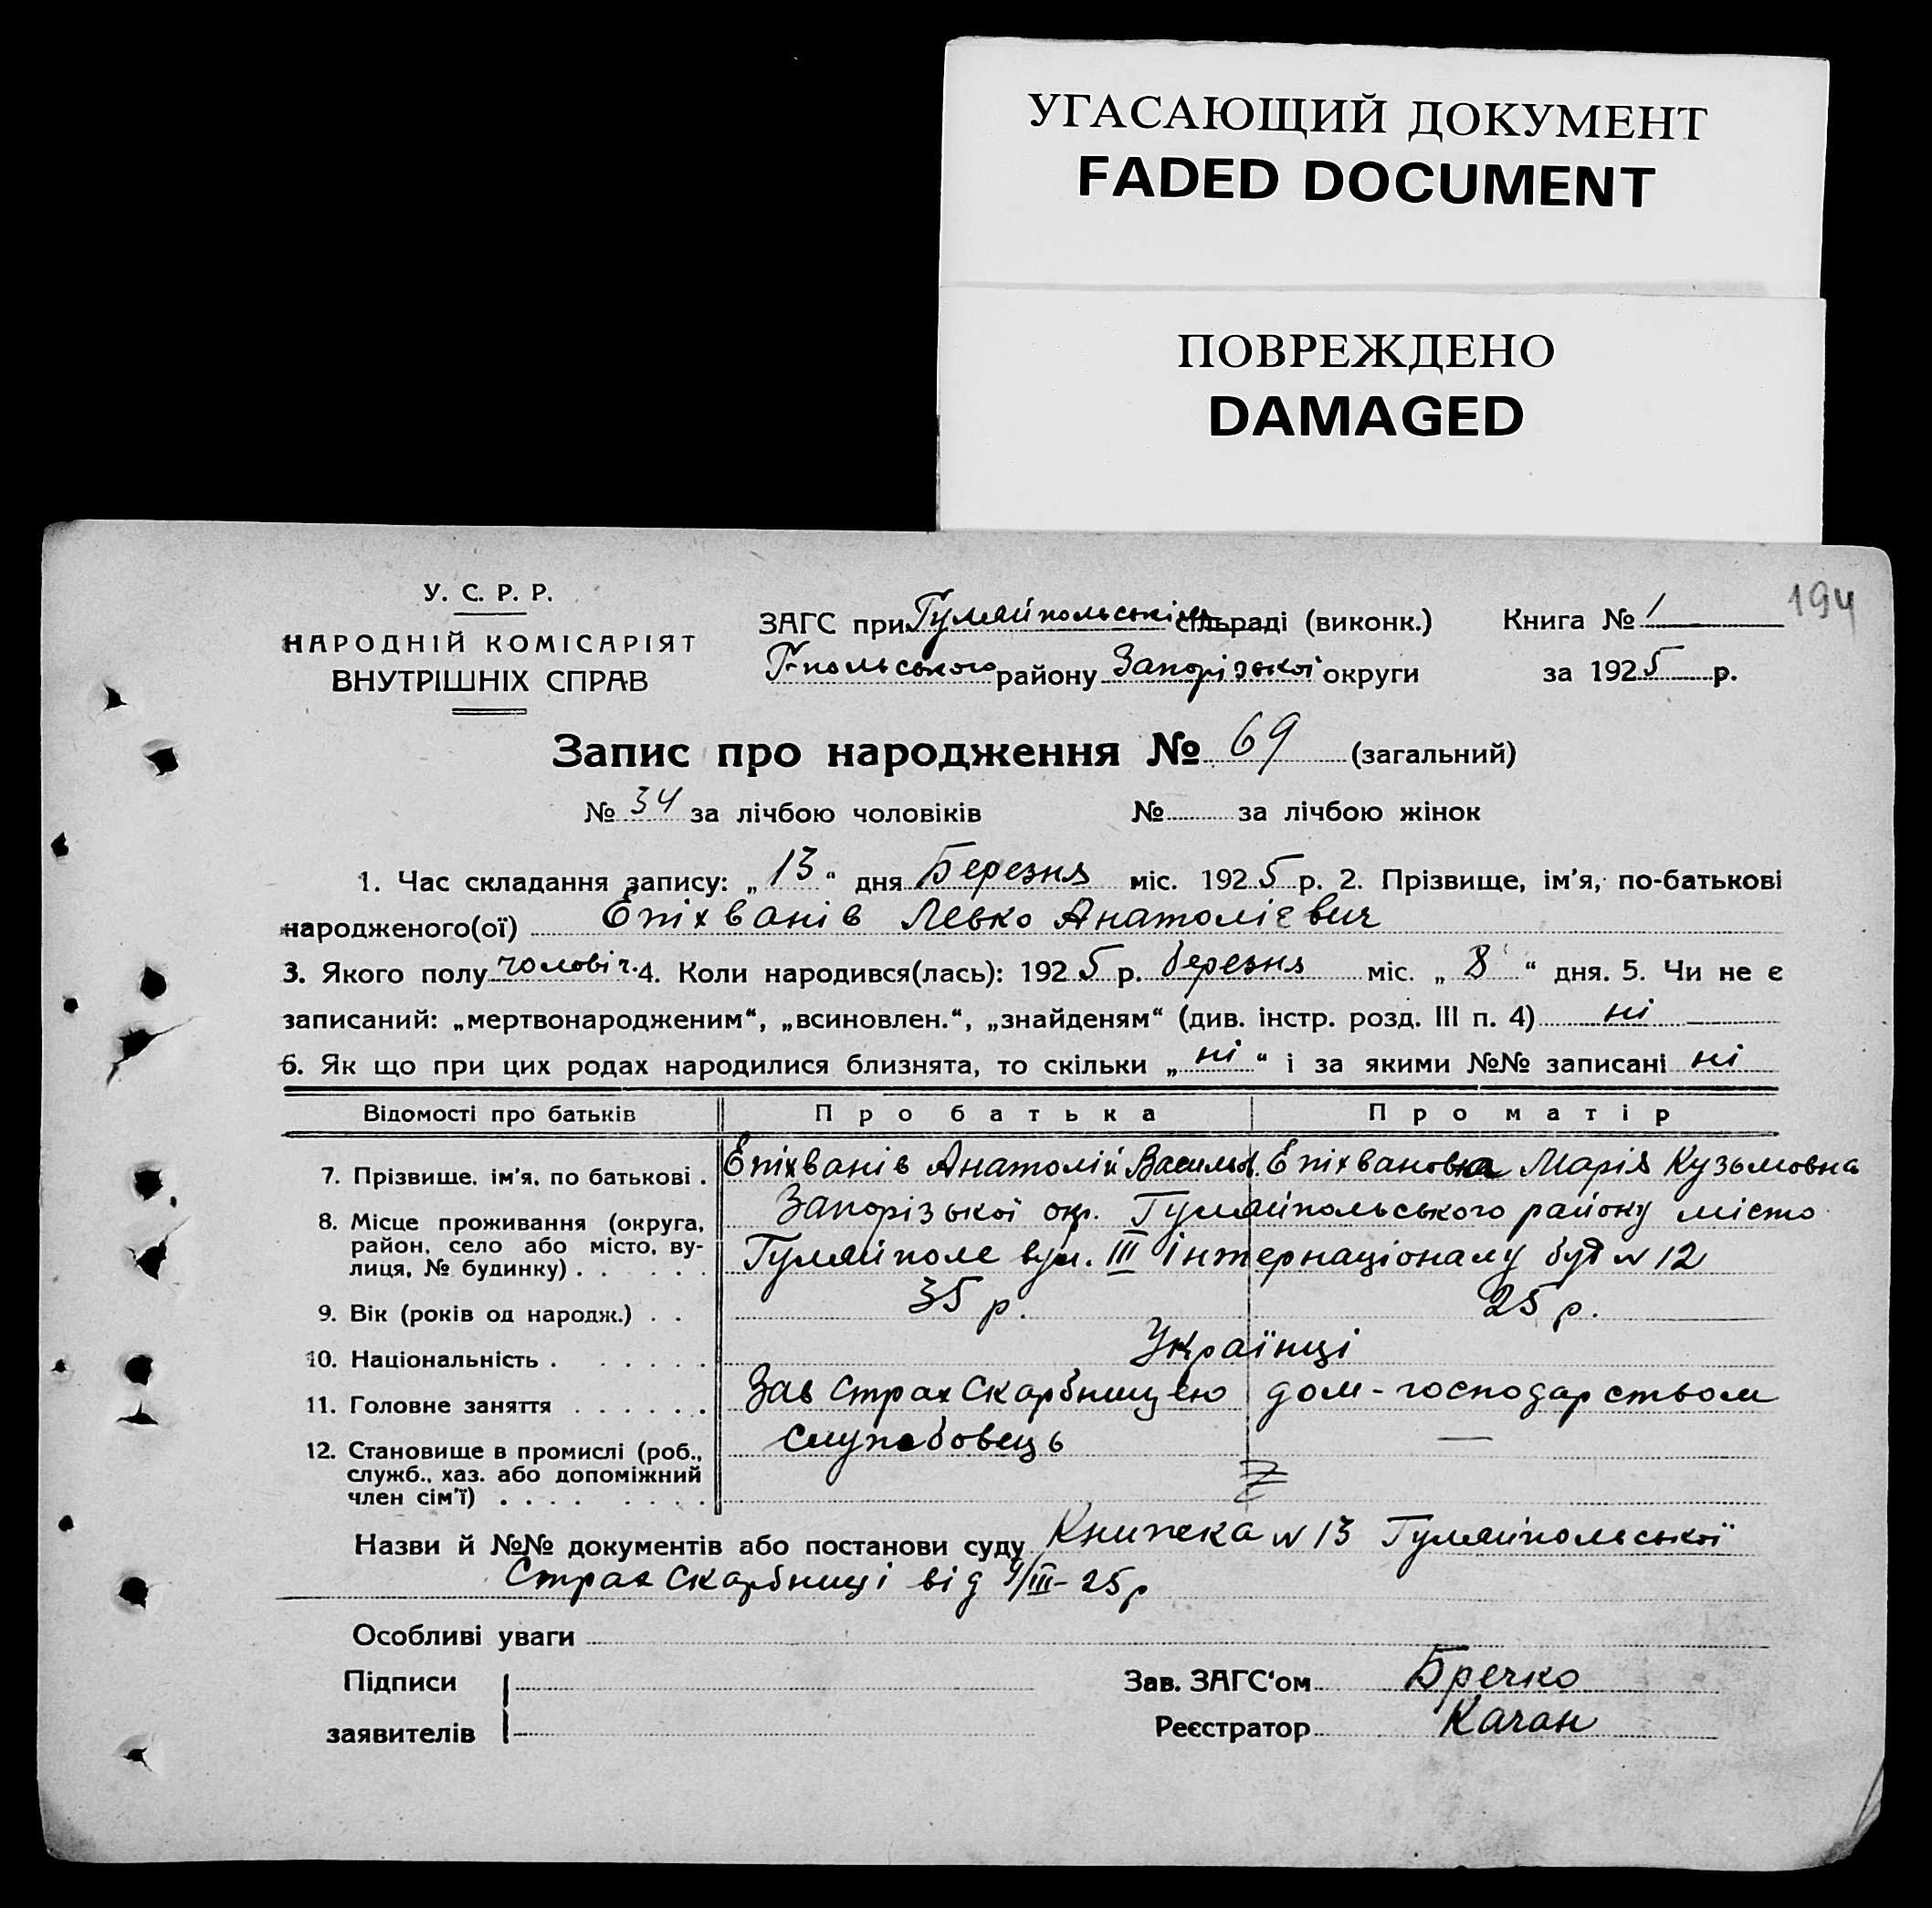 УГАСАЮЩИЙ ДОКУМЕНТ
FADED DOCUMENT
ПОВРЕЖДЕНО
DAMAGED
194
У. С. Р. Р.
НАРОДНІЙ КОМІСАРІЯТ
ВНУТРІШНІХ СПРАВ
ЗАГС при Гуляйпольськім сільраді (виконк.)
Г-польського району Запорізької округи
Книга № 1
за 1925 р.
Запис про народження № 69 (загальний)
№ 34 за лічбою чоловіків № за лічбою жінок
1. Час складання запису: „ 13 “ дня Березня міс. 1925 р. 2. Прізвище, ім'я, по-батькові
народженого(ої) Епіхванів Левко Анатолієвич
3. Якого полу чоловіч. 4. Коли народився(лась): 1925 р. березня міс. „ 8 “ дня. 5. Чи не є
записаний: „мертвонародженим“, „всиновлен.“, „знайденям“ (див. інстр. розд. III п. 4) ні
6. Як що при цих родах народилися близнята, то скільки „ ні “ і за якими №№ записані ні
Відомості про батьків Про батька Про матір
7. Прізвище, ім'я, по батькові . Епіхванів Анатолій Васильов. Епіхвановна Марія Кузьмовна
8. Місце проживання (округа, район, село або місто, вулиця, № будинку) . . . . . . Запорізької окр. Гуляйпольського району місто
Гуляйполе вул. III інтернаціоналу буд № 12
9. Вік (років од народж.) . . 35 р. 25 р.
10. Національність . . . . . . Українці
11. Головне заняття . . . . . . Зав Страх Скарбницею дом-господарством
12. Становище в промислі (роб., служб., хаз. або допоміжний член сім'ї) . . . . . . . . Службовець —
Назви й №№ документів або постанови суду Книжка № 13 Гуляйпольської
Страх Скарбниці від 9/III-25р
Особливі уваги
Підписи
заявителів
Зав. ЗАГС'ом Бречко
Реєстратор Качан